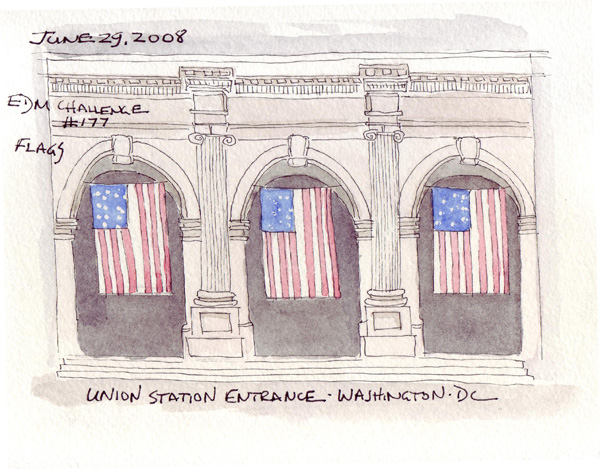 JUNE 29, 2008
EDM CHALLENGE
#177
FLAGS
UNION STATION ENTRANCE · WASHINGTON · DC